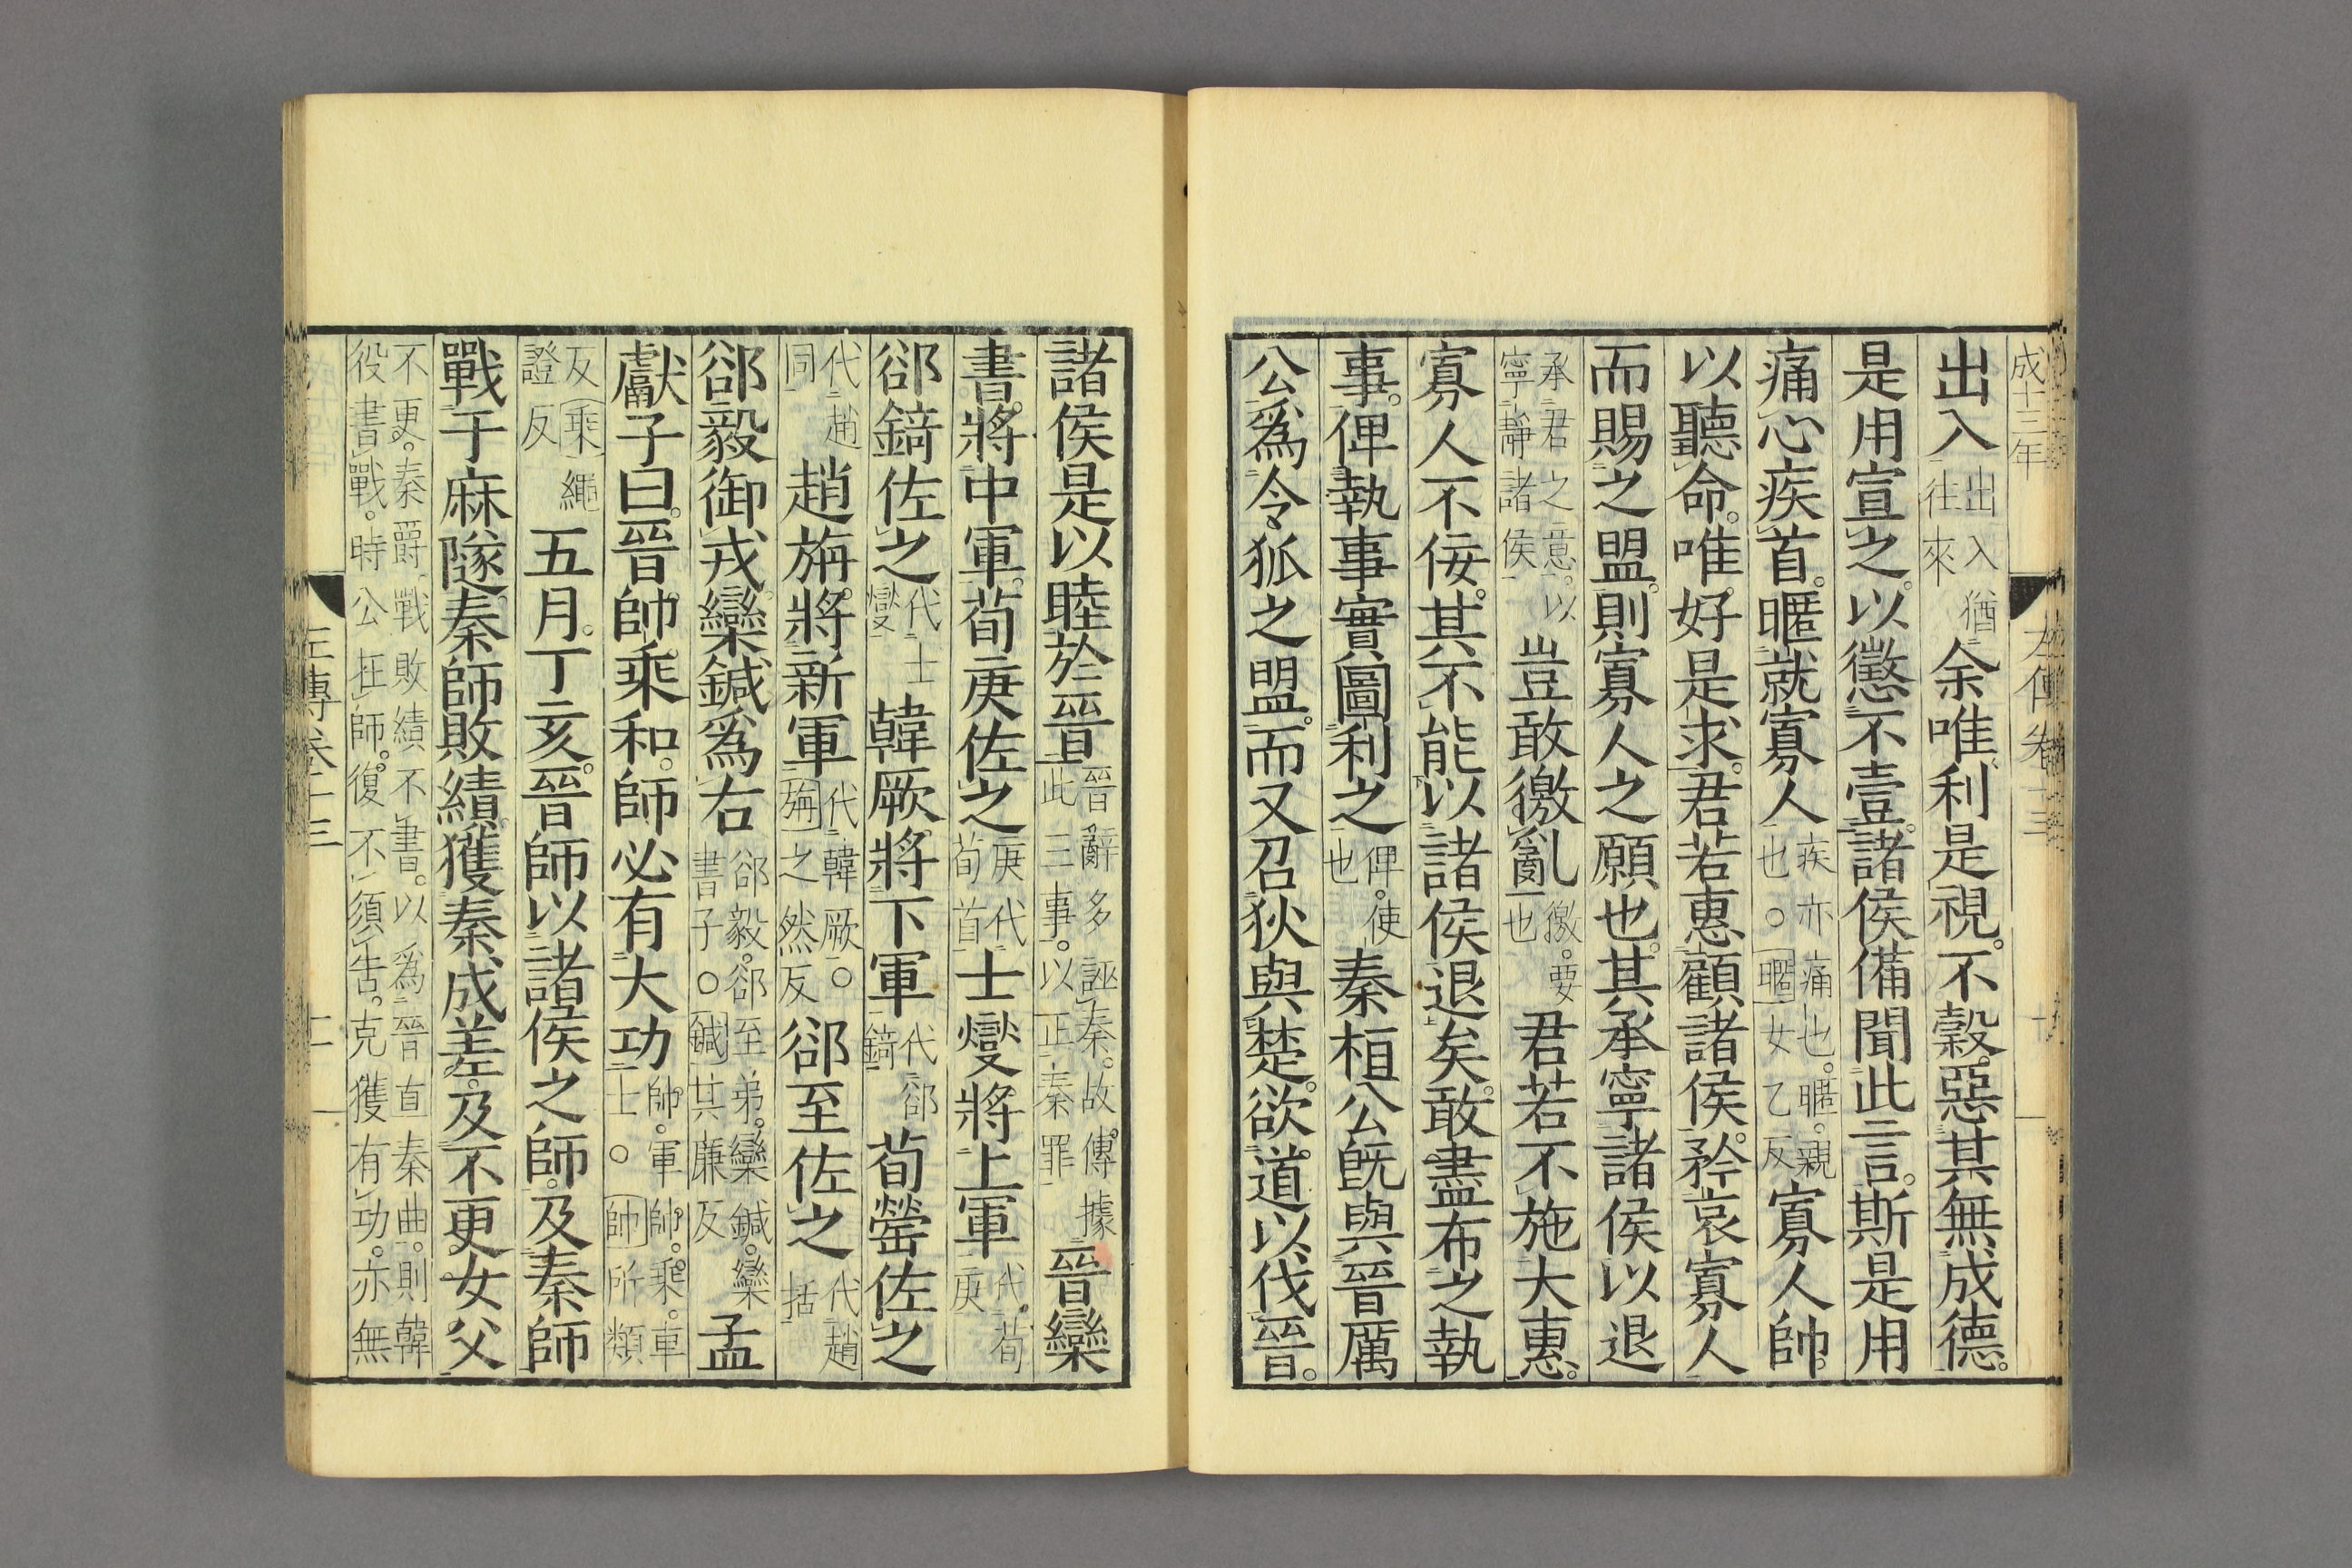 成十三年
左傳卷十三
出入出入猶往來余唯利是視。不穀惡其無成德。
是用宣之。以懲不壹。諸侯備聞此言。斯是用
痛心疾首。暱就寡人疾亦痛也。暱。親也。○暱女乙反寡人帥。
以聽命。唯好是求。君若惠顧諸侯。矜哀寡人
而賜之盟。則寡人之願也。其承寧諸侯以退
承君之意。以寧靜諸侯豈敢徼亂徼。要也君若不施大惠。
寡人不佞。其不能以諸侯退矣。敢盡布之執
事。俾執事實圖利之俾。使也秦桓公既與晉厲
公爲令狐之盟。而又召狄與楚。欲道以伐晉。
諸侯是以睦於晉晉辭多誣秦。故傳據此三事。以正秦罪晉欒
書。將中軍。荀庚佐之庚代荀首士燮將上軍代荀庚
郤錡佐之代士燮韓厥。將下軍代郤錡荀罃佐之
代趙同趙旃。將新軍代韓厥。○旃之然反郤至佐之代趙括
郤毅御戎。欒鍼爲右郤毅。郤至弟。欒鍼。欒書子○鍼其廉反孟
獻子曰。晉帥乘和。師必有大功帥。軍帥。乘。車士。○帥所類
反乘繩證反五月。丁亥。晉師以諸侯之師。及秦師
戰于麻隧。秦師敗績。獲秦成差。及不更女父
不更。秦爵。戰敗績不書。以爲晉直秦曲。則韓役書戰。時公在師。復不須告。克獲有功。亦無
左傳卷十三